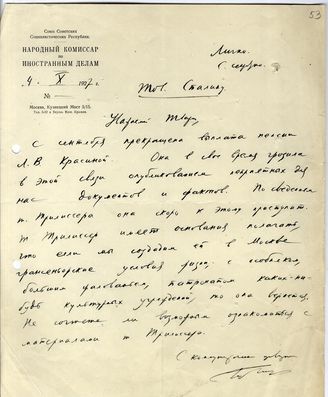 53
Союз Советских
Социалистических Республик.
НАРОДНЫЙ КОМИССАР
по
ИНОСТРАННЫМ ДЕЛАМ
4 X 1927 г.
№
Москва, Кузнецкий Мост 5/15.
Лично.
С. секретно.
Тов. Сталину.
С сентября прекращена выплата пенсии
Л. В. Красиной. Она в свое время грозила
в этой связи опубликованием неприятных для
нас документов и фактов. По сведениям
т. Трилиссера она скоро к этому приступит.
Т. Трилиссер имеет основания полагать,
что если мы создадим ей в Москве
условия с особняком,
большим жалованьем, каких-ни-
будь культурных учреждений, то она вернется.
Не сочтете ли возможным ознакомиться с
материалами т. Трилиссера.
С коммунистическим приветом